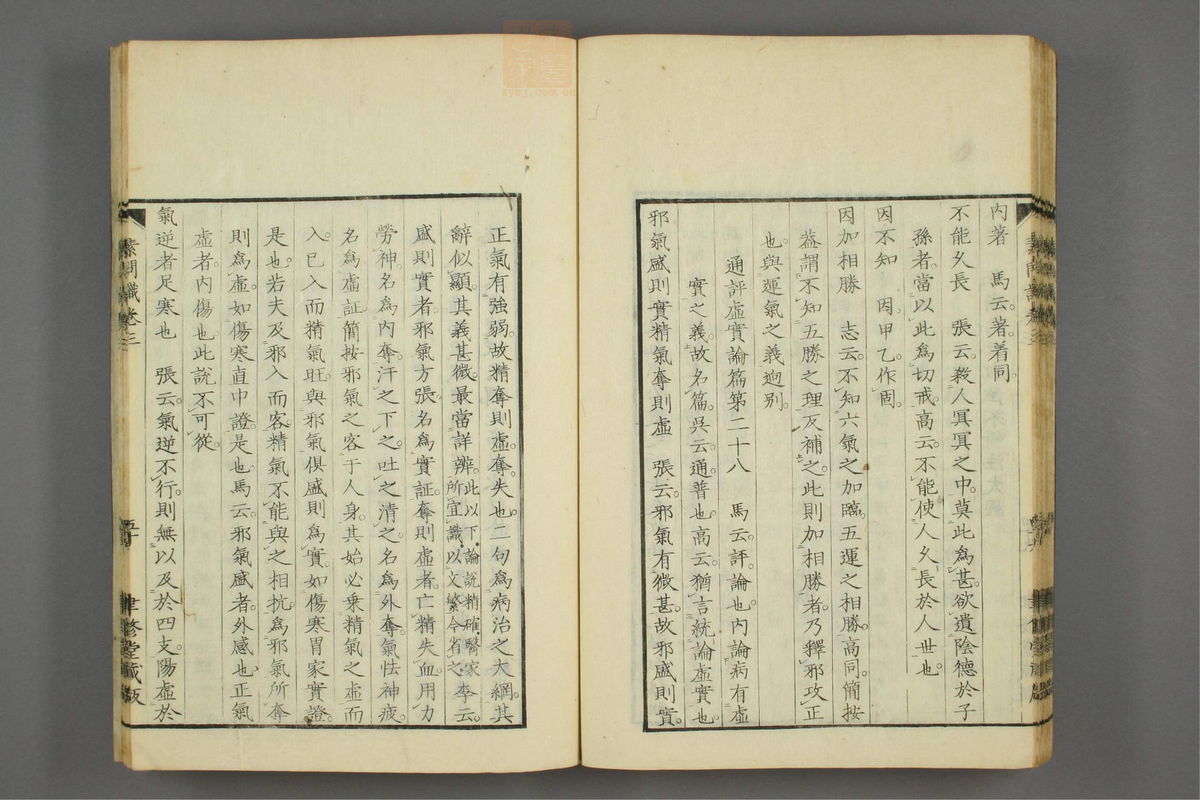 內著　馬云。著。着同。
不能久長　張云。殺人冥冥之中。莫此為甚。欲遺陰德於子
孫者。當以此為切戒。高云。不能使人久長於人世也。
因不知　因。甲乙。作固。
因加相勝　志云。不知六氣之加臨。五運之相勝。高同。簡按
蓋謂不知五勝之理。及補之。此則加相勝者。乃釋邪攻正
也。與運氣之義迥別。
通評虛實論篇第二十八　馬云。評。論也。內論病有虛
實之義。故名篇。吳云。通。普也。高云。猶言統論虛實也。
邪氣盛則實精氣奪則虛　張云。邪氣有微甚。故邪盛則實。
素問識卷三
五十
聿修堂藏版
正氣有強弱。故精奪則虛。奪。失也。二句為病治之大綱。其
辭似顯。其義甚微。最當詳辨。此以下論說精確。醫家所宜識。以文繁今省之。李云。
盛則實者。邪氣方張。名為實証。奪則虛者。亡精失血。用力
勞神。名為內奪。汗之下之。吐之清之。名為外奪。氣怯神疲。
名為虛証。簡按邪氣之客于人身。其始必乘精氣之虛而
入。已入而精氣旺。與邪氣俱盛則為實。如傷寒胃家實證。
是也。若夫及邪入而客。精氣不能與之相抗。為邪氣所奪
則為虛。如傷寒直中證。是也。馬云。邪氣盛者。外感也。正氣
虛者。內傷也。此說不可從。
氣逆者足寒也　張云。氣逆不行。則無以及於四支。陽虛於